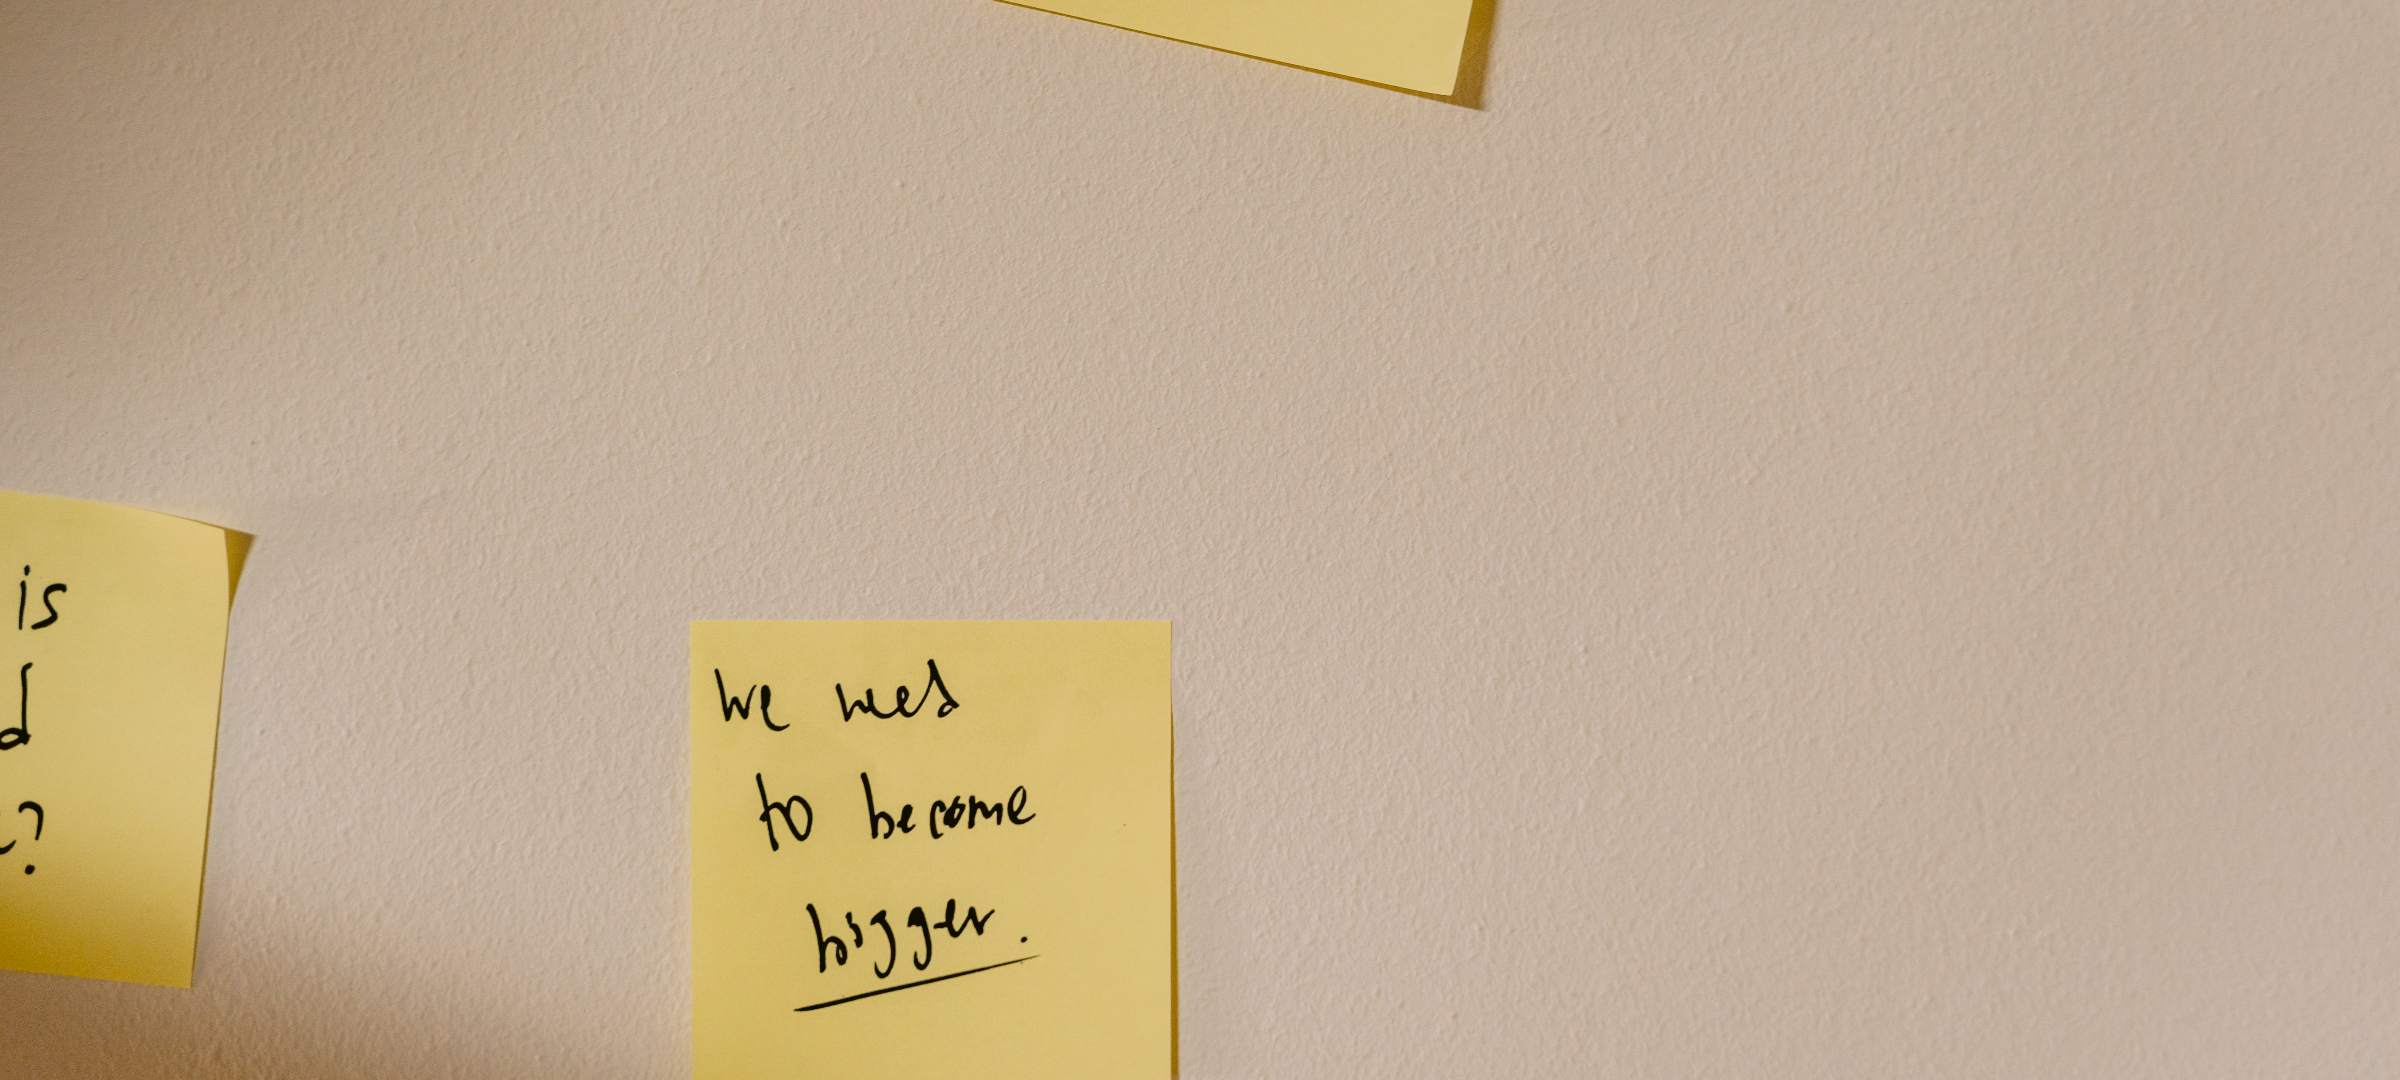 is
d
?
We need
to become
bigger.